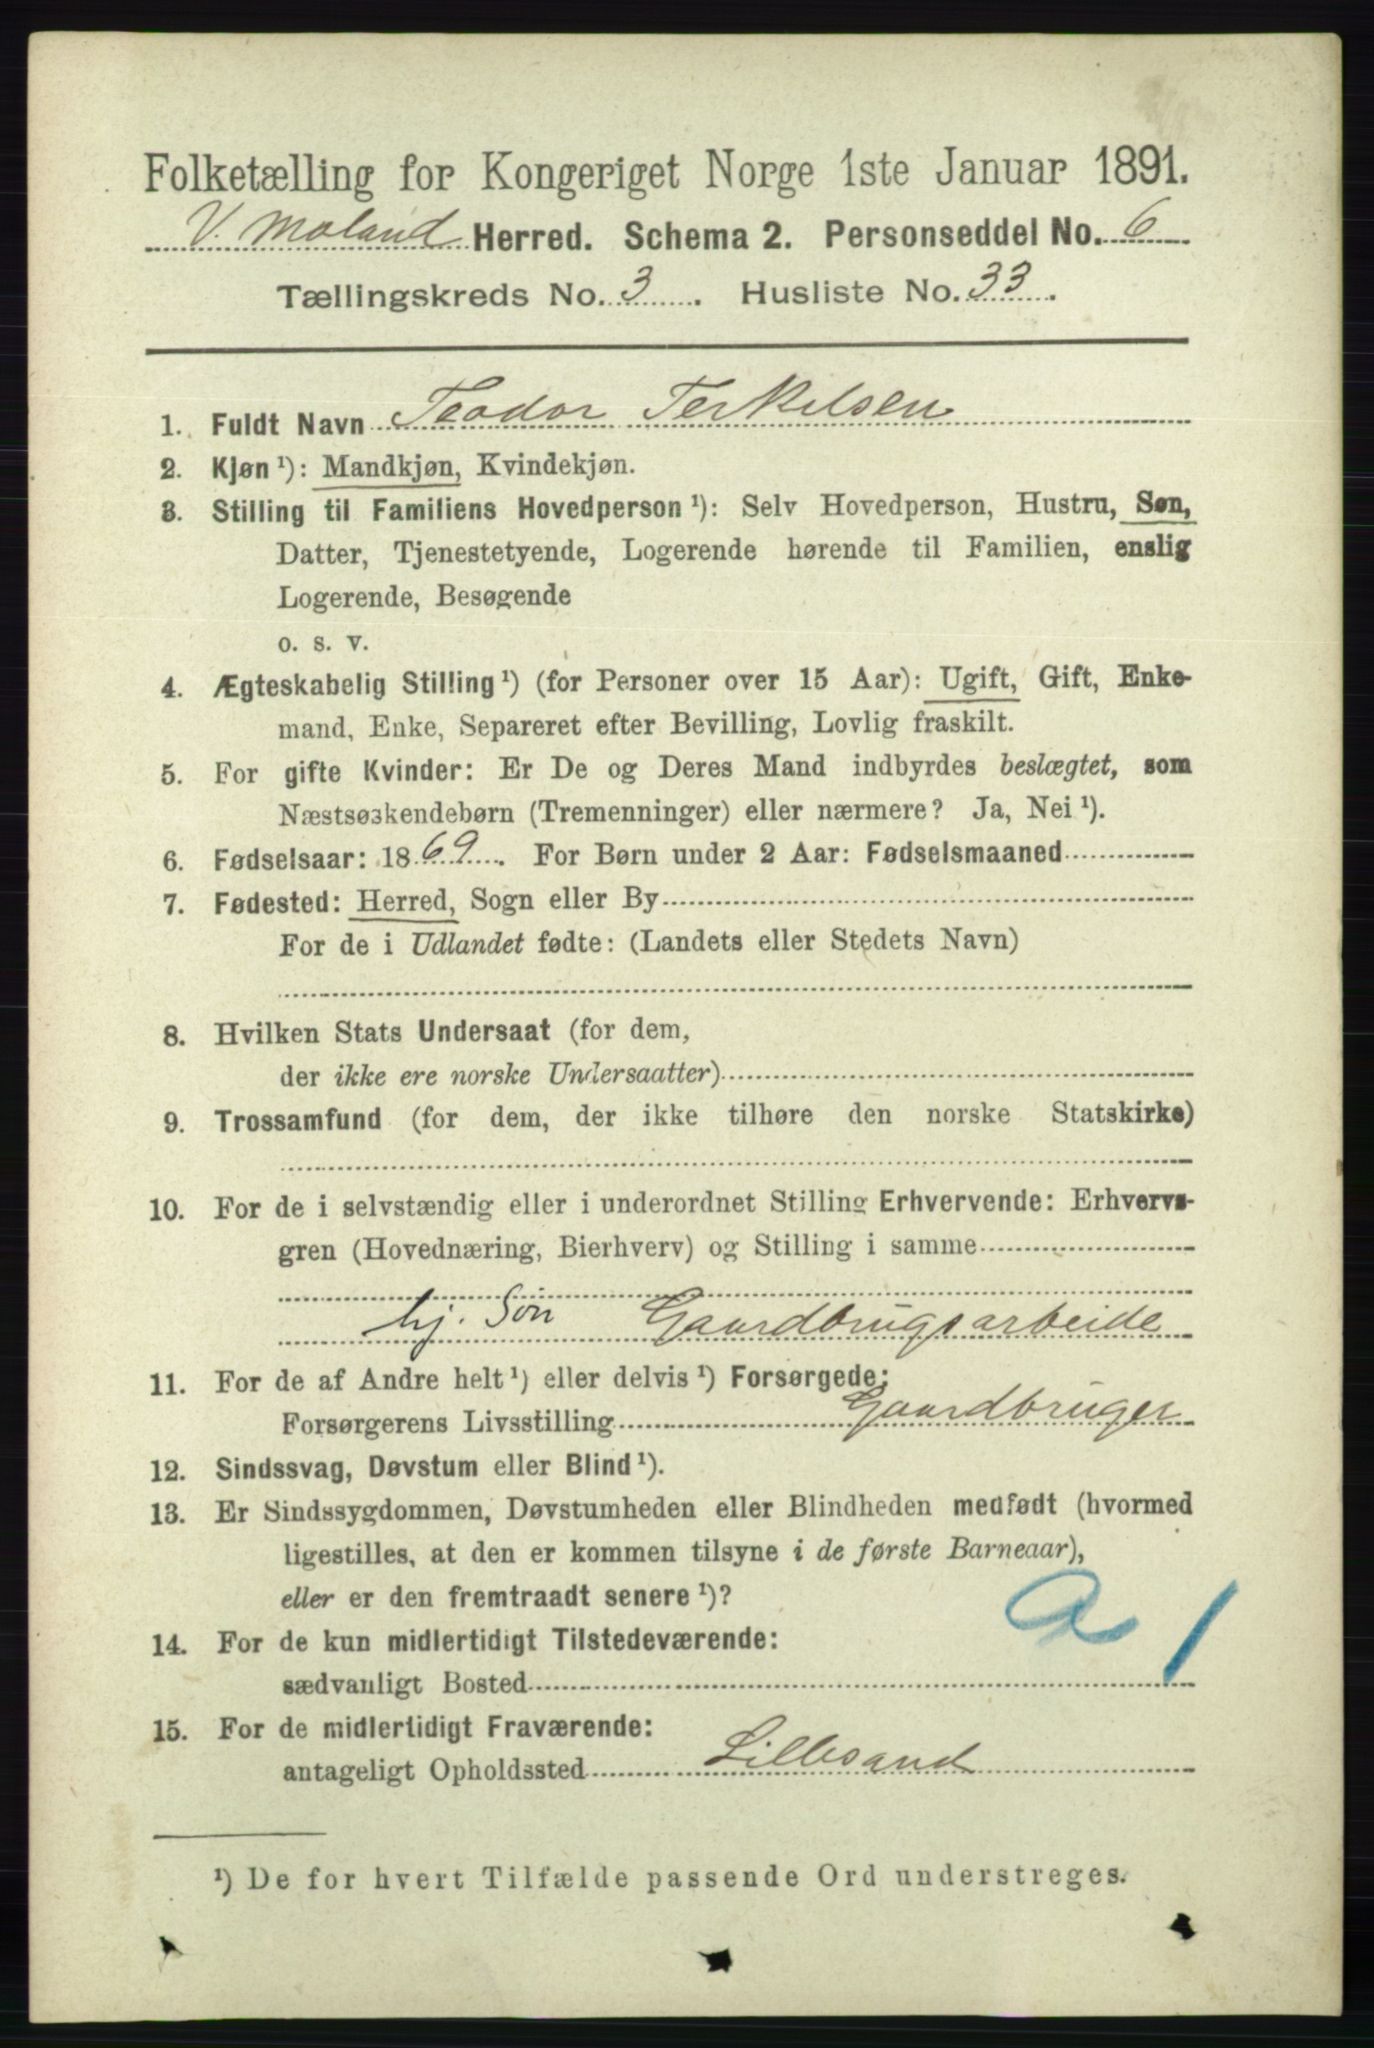 Folketælling for Kongeriget Norge 1ste Januar 1891.
V. Moland Herred. Schema 2. Personseddel No. 6
Tællingskreds No. 3. Husliste No. 33.
1. Fuldt Navn Teodor Terkelsen
2. Kjøn ¹): Mandkjøn, Kvindekjøn.
3. Stilling til Familiens Hovedperson ¹): Selv Hovedperson, Hustru, Søn,
Datter, Tjenestetyende, Logerende hørende til Familien, enslig
Logerende, Besøgende
o. s. v.
4. Ægteskabelig Stilling ¹) (for Personer over 15 Aar): Ugift, Gift, Enke-
mand, Enke, Separeret efter Bevilling, Lovlig fraskilt.
5. For gifte Kvinder: Er De og Deres Mand indbyrdes beslægtet, som
Næstsøskendebørn (Tremenninger) eller nærmere? Ja, Nei ¹).
6. Fødselsaar: 1869. For Børn under 2 Aar: Fødselsmaaned
7. Fødested: Herred, Sogn eller By
For de i Udlandet fødte: (Landets eller Stedets Navn)
8. Hvilken Stats Undersaat (for dem,
der ikke ere norske Undersaatter)
9. Trossamfund (for dem, der ikke tilhøre den norske Statskirke)
10. For de i selvstændig eller i underordnet Stilling Erhvervende: Erhvervs-
gren (Hovednæring, Bierhverv) og Stilling i samme
hj. Søn Gaardbrugsarbeide
11. For de af Andre helt ¹) eller delvis ¹) Forsørgede:
Forsørgerens Livsstilling Gaardbruger
12. Sindssvag, Døvstum eller Blind ¹).
13. Er Sindssygdommen, Døvstumheden eller Blindheden medfødt (hvormed
ligestilles, at den er kommen tilsyne i de første Barneaar),
eller er den fremtraadt senere ¹)?
a 1
14. For de kun midlertidigt Tilstedeværende:
sædvanligt Bosted
15. For de midlertidigt Fraværende:
antageligt Opholdssted Lillesand
¹) De for hvert Tilfælde passende Ord understreges.